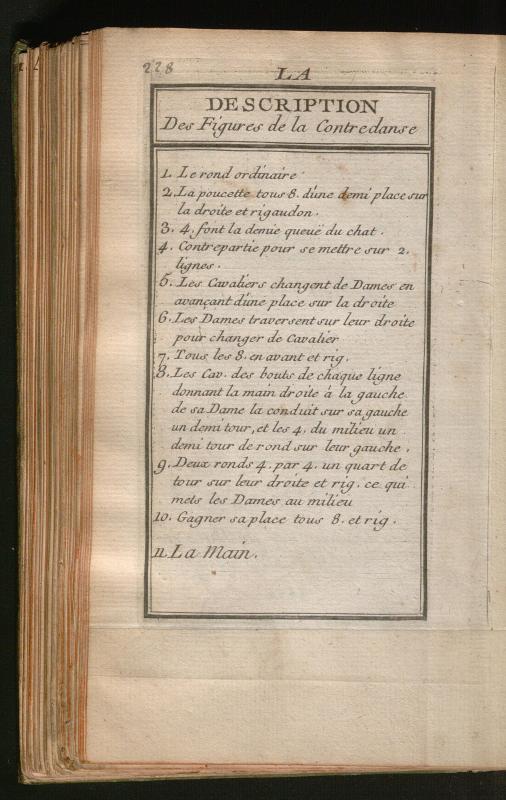 228
LA
DESCRIPTION
Des Figures de la Contredanse
1. Le rond ordinaire
2. La poucette tous 8. d'une demi place sur
la droite et rigaudon.
3. 4. font la demie queue du chat.
4. Contrepartie pour se mettre sur 2.
lignes.
5. Les Cavaliers changent de Dames en
avançant d'une place sur la droite
6. Les Dames traversent sur leur droite
pour changer de Cavalier
7. Tous les 8. en avant et rig.
8. Les Cav. des bouts de chaque ligne
donnant la main droite à la gauche
de sa Dame la conduit sur sa gauche
un demi tour, et les 4. du milieu un
demi tour de rond sur leur gauche.
9. Deux ronds 4. par 4. un quart de
tour sur leur droite et rig. ce qui
mets les Dames au milieu
10. Gagner sa place tous 8. et rig.
11. La Main.